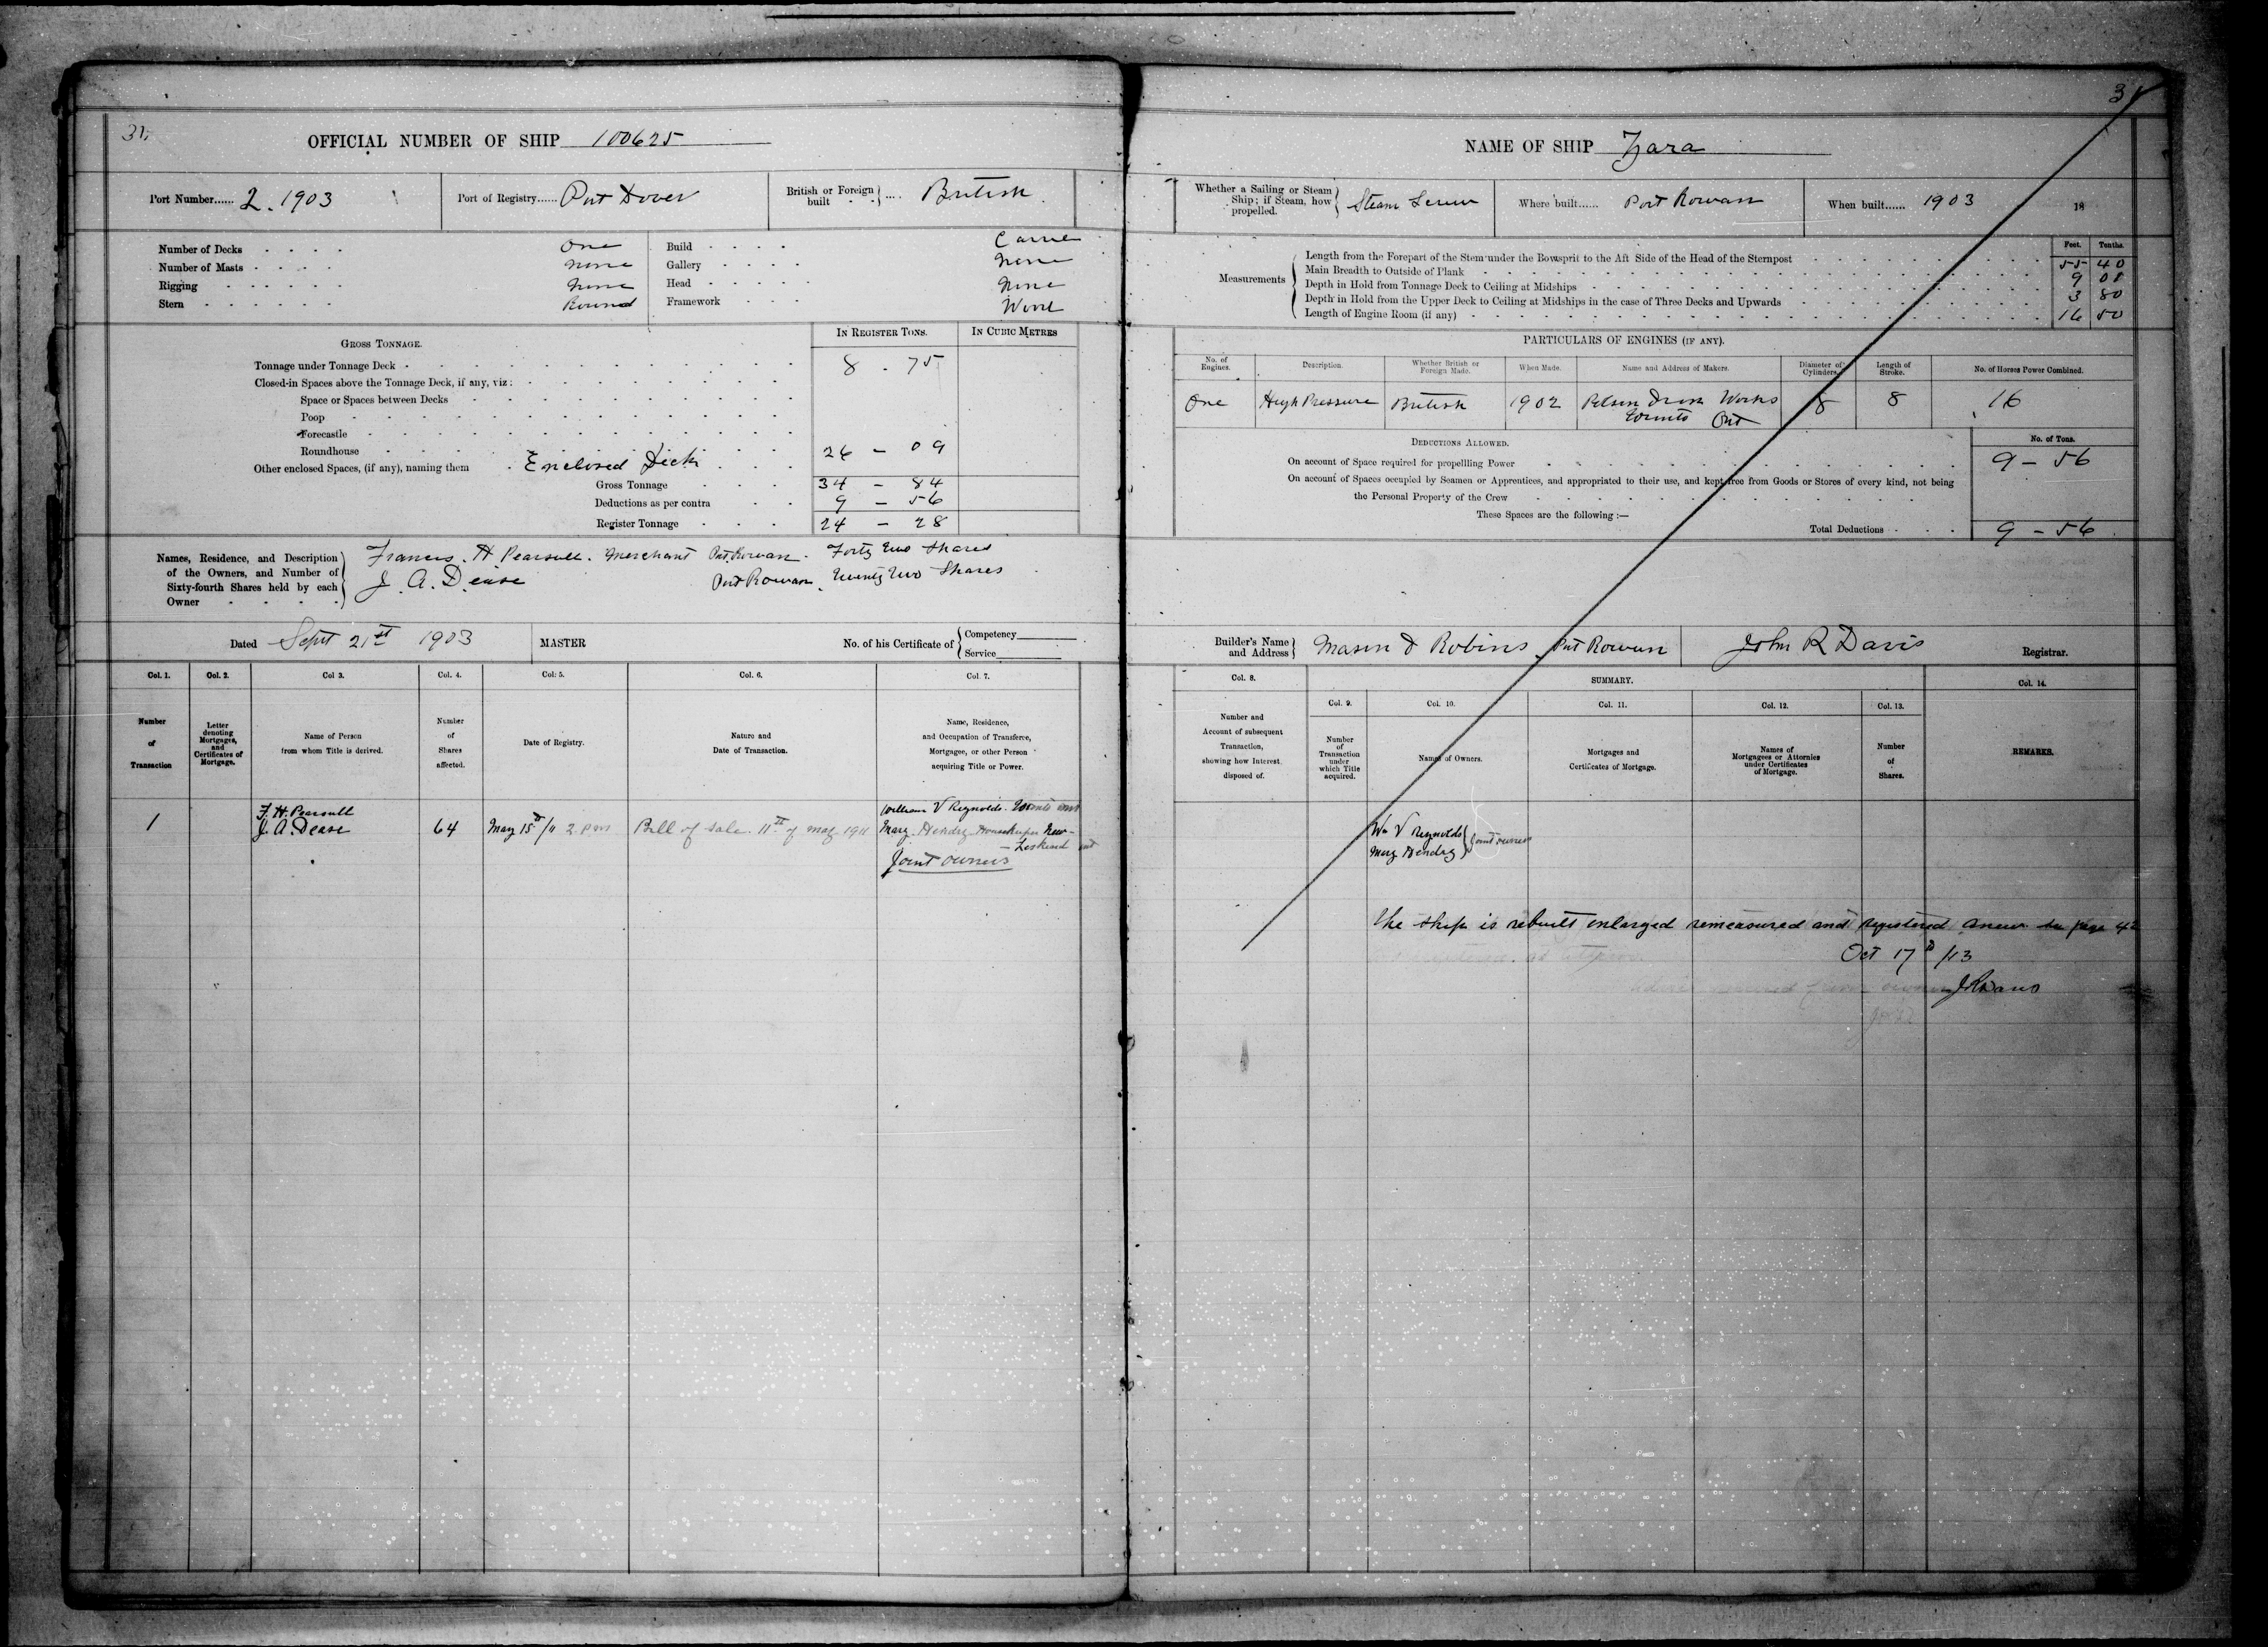 31.
OFFICIAL NUMBER OF SHIP 100625
Port Number...... 2. 1903
Port of Registry...... Port Dover
British or Foreign built .... British
Number of Decks One
Number of Masts none
Rigging none
Stern Round
Build Carvel
Gallery none
Head none
Framework Wood
GROSS TONNAGE.
IN REGISTER TONS.
IN CUBIC METRES
Tonnage under Tonnage Deck 8 . 75
Closed-in Spaces above the Tonnage Deck, if any, viz:
Space or Spaces between Decks
Poop
Forecastle
Roundhouse
Other enclosed Spaces, (if any), naming them Enclosed Deck 26 - 09
Gross Tonnage 34 - 84
Deductions as per contra 9 - 56
Register Tonnage 24 - 28
Names, Residence, and Description
of the Owners, and Number of
Sixty-fourth Shares held by each
Owner
Francis. H Pearsull. Merchant Port Rowan. Forty two Shares
J. A. Dease Port Rowan. Twenty two Shares
Dated Sept 21st 1903
MASTER
No. of his Certificate of
Competency
Service
Col. 1.
Number
of
Transaction
Col. 2.
Letter
denoting
Mortgages,
and
Certificates of
Mortgage.
Col 3.
Name of Person
from whom Title is derived.
Col. 4.
Number
of
Shares
affected.
Col: 5.
Date of Registry.
Col. 6.
Nature and
Date of Transaction.
Col. 7.
Name, Residence,
and Occupation of Transferee,
Mortgagee, or other Person
acquiring Title or Power.
1
F. H. Pearsull
J. A. Dease
64
May 15th/11 2 pm
Bill of Sale. 11th of May 1911
William V Reynolds. Toronto
Mary Hendry Housekeeper New-
- Liskeard Ont
Joint owners
31
NAME OF SHIP Zara
Whether a Sailing or Steam
Ship; if Steam, how
propelled.
Steam Screw
Where built...... Port Rowan
When built...... 1903
18
Measurements
Feet. Tenths.
Length from the Forepart of the Stem under the Bowsprit to the Aft Side of the Head of the Sternpost 55 40
Main Breadth to Outside of Plank 9 00
Depth in Hold from Tonnage Deck to Ceiling at Midships 3 80
Depth in Hold from the Upper Deck to Ceiling at Midships in the case of Three Decks and Upwards
Length of Engine Room (if any) 16 50
PARTICULARS OF ENGINES (IF ANY).
No. of
Engines.
Description.
Whether British or
Foreign Made.
When Made.
Name and Address of Makers.
Diameter of
Cylinders.
Length of
Stroke.
No. of Horses Power Combined.
One High Pressure British 1902 Polson Iron Works 8 8 16
Toronto Ont
DEDUCTIONS ALLOWED.
No. of Tons.
On account of Space required for propellling Power 9 - 56
On account of Spaces occupied by Seamen or Apprentices, and appropriated to their use, and kept free from Goods or Stores of every kind, not being
the Personal Property of the Crew
These Spaces are the following :—
Total Deductions 9 - 56
Builder's Name
and Address
Mason & Robins Port Rowan
John R Davis
Registrar.
Col. 8.
Number and
Account of subsequent
Transaction,
showing how Interest
disposed of.
SUMMARY.
Col. 9.
Number
of
Transaction
under
which Title
acquired.
Col. 10.
Names of Owners.
Col. 11.
Mortgages and
Certificates of Mortgage.
Col. 12.
Names of
Mortgagees or Attornies
under Certificates
of Mortgage.
Col. 13.
Number
of
Shares.
Col. 14.
REMARKS.
Wm V Reynolds
Mary Hendry
Joint owners
the ship is rebuilt enlarged remeasured and registered anew see page 42
Oct 17th/13
JRDavis